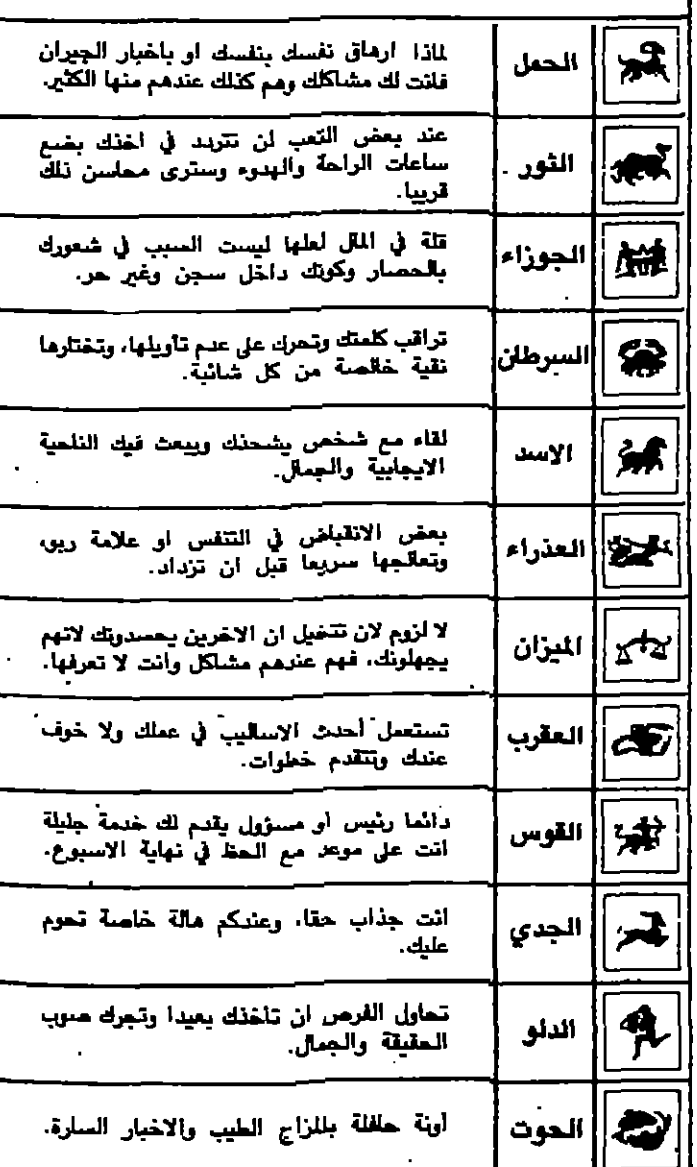 الحمل
لماذا ارهاق نفسك بنفسك او باخبار الجيران
فانت لك مشاكلك وهم كذلك عندهم منها الكثير.
الثور
عند بعض التعب لن تتردد في اخذك بضع
ساعات الراحة والهدوء وسترى محاسن ذلك
قريبا.
الجوزاء
قلة في المال لعلها ليست السبب في شعورك
بالحصار وكونك داخل سجن وغير حر.
السرطان
تراقب كلمتك وتحرك على عدم تأويلها، وتختارها
نقية خالصة من كل شائبة.
الاسد
لقاء مع شخص يشحنك ويبعث فيك الناحية
الايجابية والجمال.
العذراء
بعض الانقباض في التنفس او علامة ربو،
وتعالجها سريعا قبل ان تزداد.
الميزان
لا لزوم لان تتخيل ان الاخرين يحسدونك لانهم
يجهلونك، فهم عندهم مشاكل وانت لا تعرفها.
العقرب
تستعمل أحدث الاساليب في عملك ولا خوف
عندك وتتقدم خطوات.
القوس
دائما رئيس او مسؤول يقدم لك خدمة جليلة
انت على موعد مع الحظ في نهاية الاسبوع.
الجدي
انت جذاب حقا، وعندكم هالة خاصة تحوم
عليك.
الدلو
تحاول الفرص ان تاخذك بعيدا وتجرك صوب
الحقيقة والجمال.
الحوت
آونة حافلة بالمزاج الطيب والاخبار السارة.